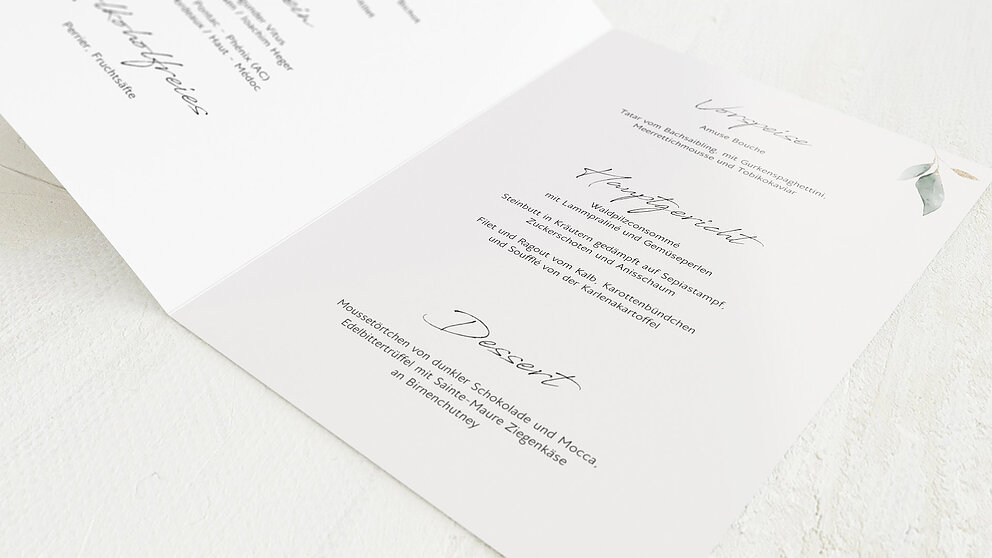 Alkoholfreies
Perrier, Fruchtsäfte
Vitus
/ Joachim Heger
- Phénix (AC)
/ Haut - Médoc
Vorspeise
Amuse Bouche
Tatar vom Bachsaibling, mit Gurkenspaghettini,
Meerrettichmousse und Tobikokaviar
Hauptgericht
Waldpilzconsommé
mit Lammpraliné und Gemüseperlen
Steinbutt in Kräutern gedämpft auf Sepiastampf,
Zuckerschoten und Anisschaum
Filet und Ragout vom Kalb, Karottenbündchen
und Soufflé von der Karlenakartoffel
Dessert
Moussetörtchen von dunkler Schokolade und Mocca,
Edelbittertrüffel mit Sainte-Maure Ziegenkäse
an Birnenchutney